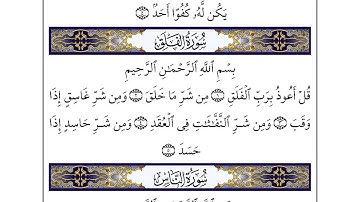 يَكُن لَّهُۥ كُفُوًا أَحَدٌۢ ۝٤
سُورَةُ الفَلَقِ
بِسْمِ ٱللَّهِ ٱلرَّحْمَـٰنِ ٱلرَّحِيمِ
قُلْ أَعُوذُ بِرَبِّ ٱلْفَلَقِ ۝١ مِن شَرِّ مَا خَلَقَ ۝٢ وَمِن شَرِّ غَاسِقٍ إِذَا
وَقَبَ ۝٣ وَمِن شَرِّ ٱلنَّفَّـٰثَـٰتِ فِى ٱلْعُقَدِ ۝٤ وَمِن شَرِّ حَاسِدٍ إِذَا
حَسَدَ ۝٥
سُورَةُ النَّاسِ